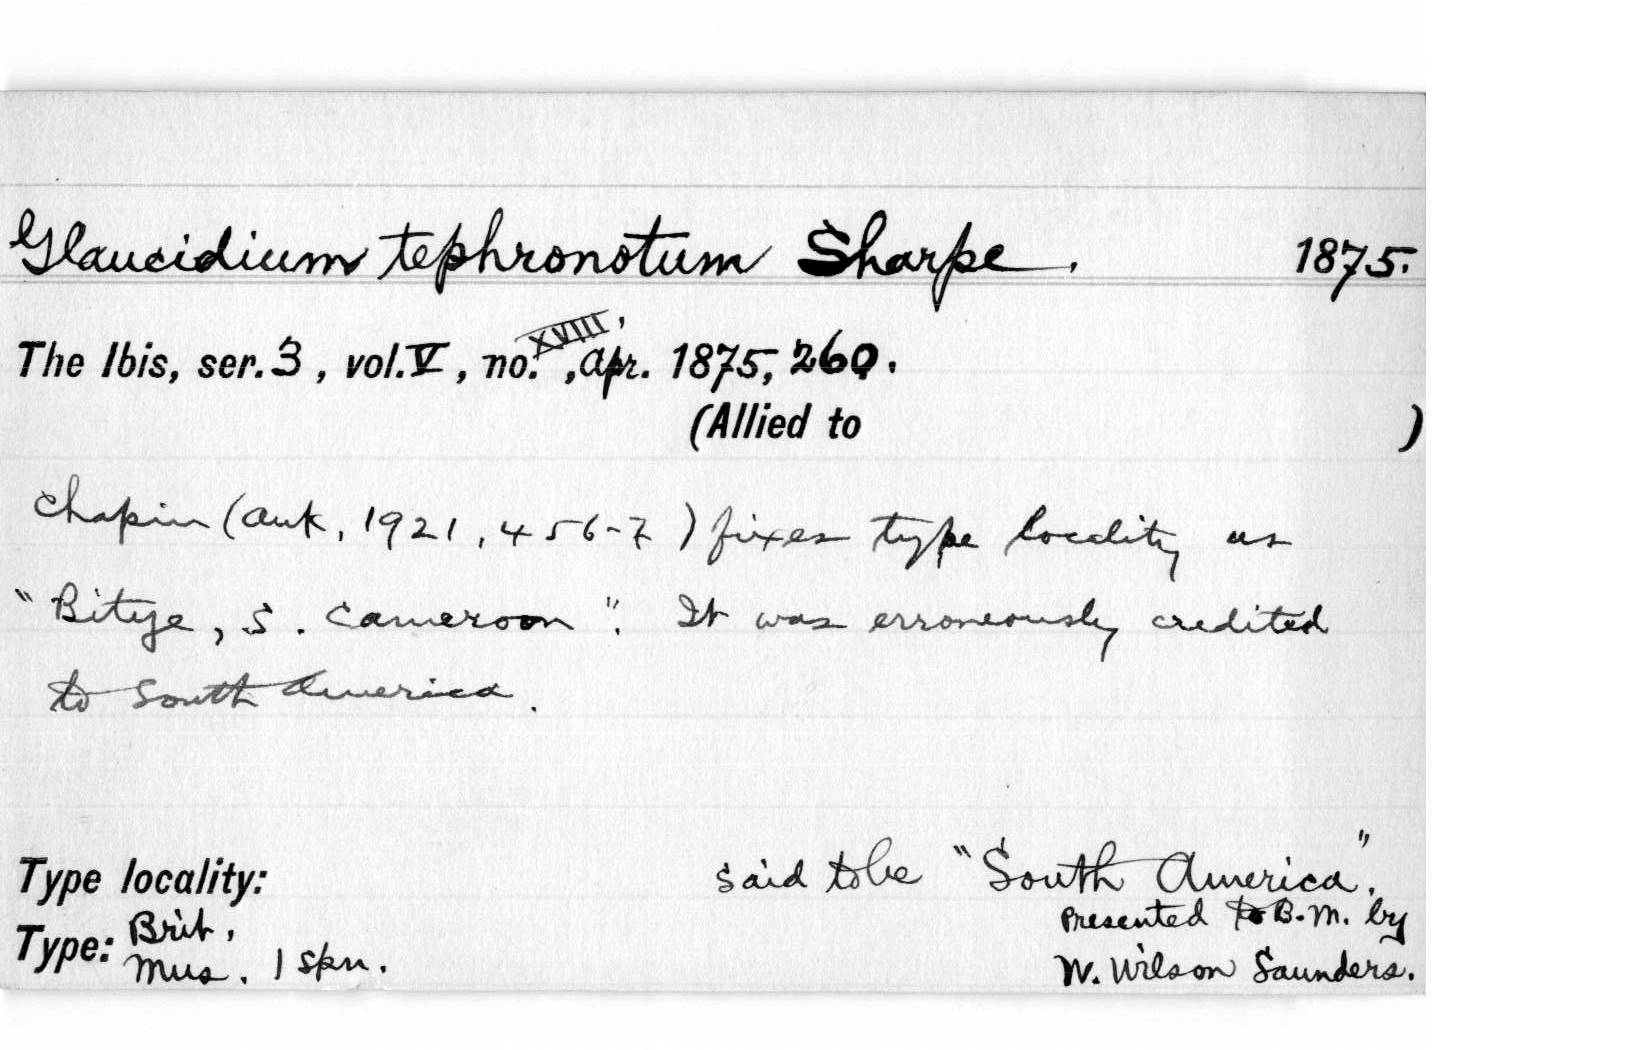 Glaucidium tephronotum Sharpe. 1875.
The Ibis, ser. 3, vol. V, no. XVIII, Apr. 1875, 260.
(Allied to )
Chapin (Auk, 1921, 456-7) fixes type locality as
"Bitye, S. Cameroon". It was erroneously credited
to South America.
Type locality: said to be "South America".
Presented to B.M. by
Type: Brit. Mus. 1 spn. W. Wilson Saunders.